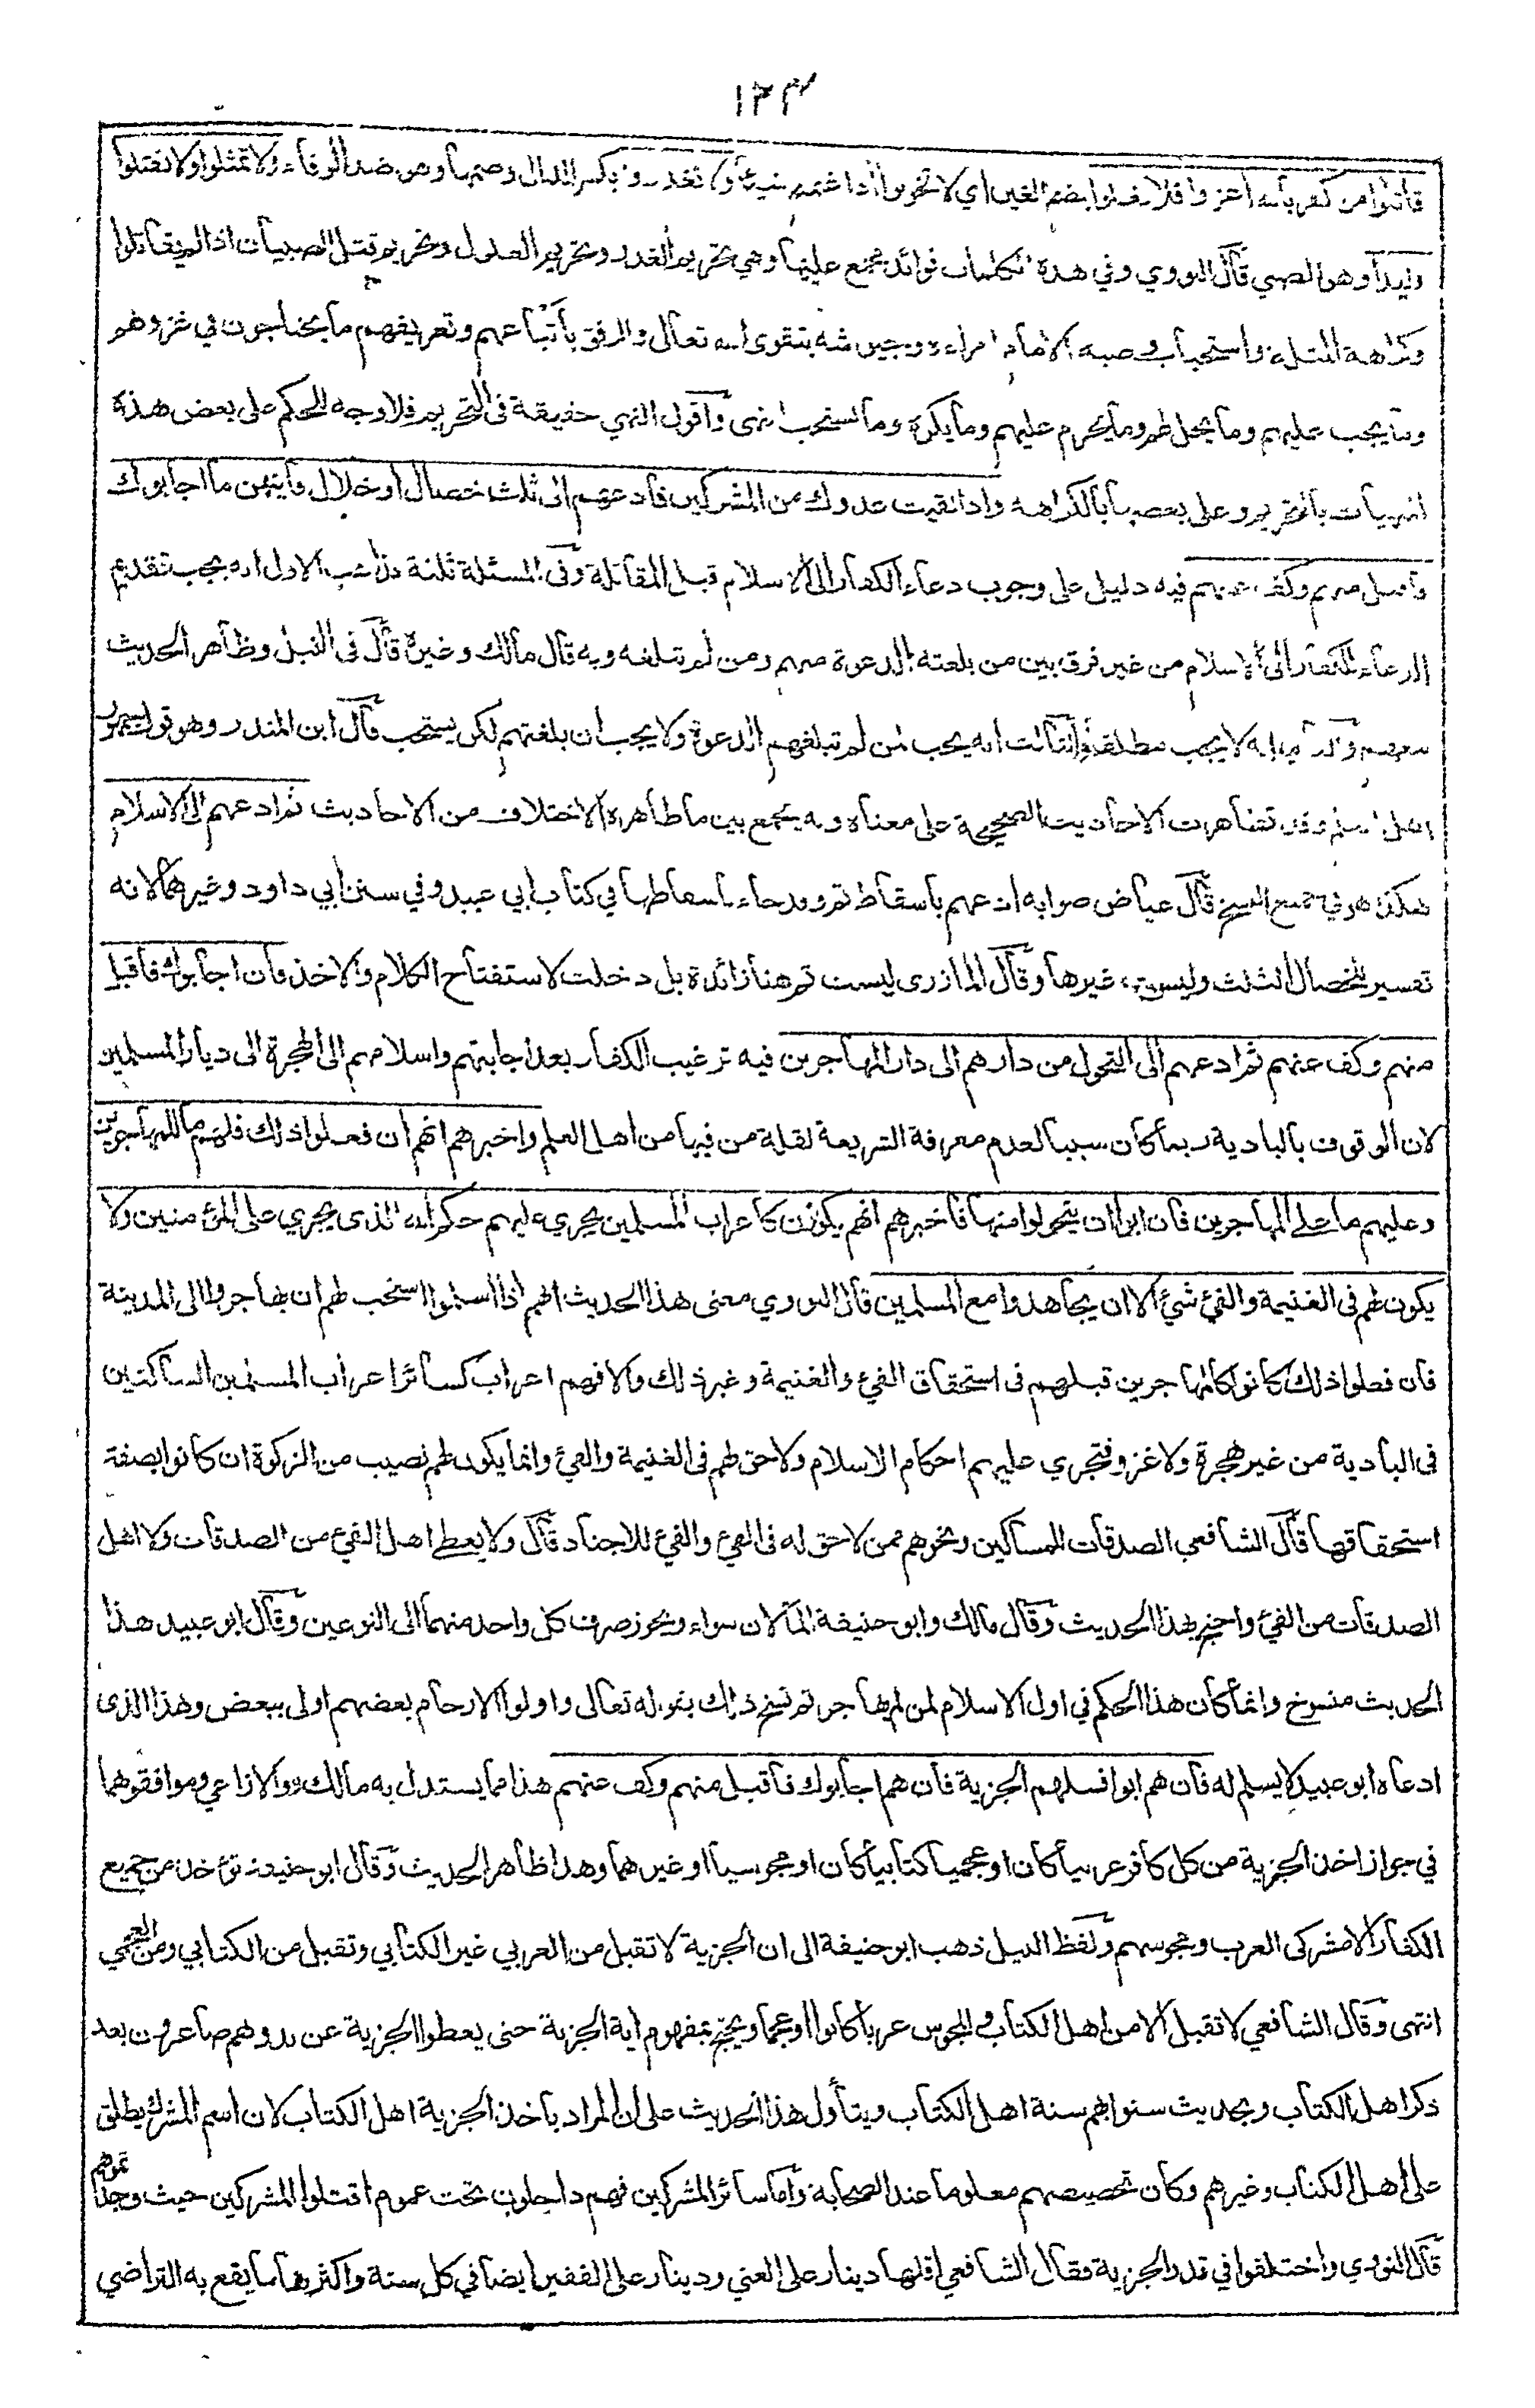 ١٢٣
قاتلوا من كفر بالله اغزوا فلا تغلوا بضم الغين اي لا تخونوا اذا غنمتم شيئا ولا تغدروا بكسر الدال وضمها وهو ضد الوفاء ولا تمثلوا ولا تقتلوا
وليدا وهو الصبي قال النووي وفي هذه الكلمات فوائد مجمع عليها وهي تحريم الغدر وتحريم الغلول وتحريم قتل الصبيان اذا لم يقاتلوا
وكراهة المثلة واستحباب وصية الامام امراءه وجيوشه بتقوى الله تعالى والرفق بأتباعهم وتعريفهم ما يحتاجون في غزوهم
وما يجب عليهم وما يحل لهم وما يحرم عليهم وما يكره وما يستحب انتهى واقول النهي حقيقة في التحريم فلا وجه للحكم على بعض هذه
المنهيات بالتحريم وعلى بعضها بالكراهة واذا لقيت عدوك من المشركين فادعهم الى ثلث خصال او خلال فأيتهن ما اجابوك
فاقبل منهم وكف عنهم فيه دليل على وجوب دعاء الكفار الى الاسلام قبل المقاتلة وفي المسئلة ثلثة مذاهب الاول انه يجب تقديم
الدعاء للكفار الى الاسلام من غير فرق بين من بلغته الدعوة منهم ومن لم تبلغه وبه قال مالك وغيره قال في النيل وظاهر الحديث
معهم والثاني انه لا يجب مطلقا والثالث انه يجب لمن لم تبلغهم الدعوة ولا يجب ان بلغتهم لكن يستحب قال ابن المنذر وهو قول جمهور
اهل العلم وقد تظاهرت الاحاديث الصحيحة على معناه وبه يجمع بين ما ظاهره الاختلاف من الاحاديث ثم ادعهم الى الاسلام
هكذا هو في جميع النسخ قال عياض صوابه ادعهم باسقاط ثم وقد جاء باسقاطها في كتاب ابي عبيد وفي سنن ابي داود وغيرهما لانه
تفسير للخصال الثلث وليست غيرها وقال المازري ليست ثم هنا زائدة بل دخلت لاستفتاح الكلام والاخذ فان اجابوك فاقبل
منهم وكف عنهم ثم ادعهم الى التحول من دارهم الى دار المهاجرين فيه ترغيب الكفار بعد اجابتهم واسلامهم الى الهجرة الى ديار المسلمين
لان الوقوف بالبادية ربما كان سببا لعدم معرفة الشريعة لقلة من فيها من اهل العلم واخبرهم انهم ان فعلوا ذلك فلهم ما للمهاجرين
وعليهم ما على المهاجرين فان ابوا ان يتحولوا منها فاخبرهم انهم يكونون كأعراب المسلمين يجري عليهم حكم الله الذي يجري على المؤمنين ولا
يكون لهم في الغنيمة والفيء شيء الا ان يجاهدوا مع المسلمين قال النووي معنى هذا الحديث انهم اذا اسلموا استحب لهم ان يهاجروا الى المدينة
فان فعلوا ذلك كانوا كالمهاجرين قبلهم في استحقاق الفيء والغنيمة وغير ذلك والا فهم اعراب كسائر اعراب المسلمين الساكنين
في البادية من غير هجرة ولا غزو فتجري عليهم احكام الاسلام ولا حق لهم في الغنيمة والفيء وانما يكون لهم نصيب من الزكوة ان كانوا بصفة
استحقاقها قال الشافعي الصدقات للمساكين ونحوهم ممن لا حق له في الفيء والفيء للاجناد قال ولا يعطى اهل الفيء من الصدقات ولا اهل
الصدقات من الفيء واحتج بهذا الحديث وقال مالك وابو حنيفة المالان سواء ويجوز صرف كل واحد منهما الى النوعين وقال ابو عبيد هذا
الحديث منسوخ وانما كان هذا الحكم في اول الاسلام لمن لم يهاجر ثم نسخ ذلك بقوله تعالى واولوا الارحام بعضهم اولى ببعض وهذا الذى
ادعاه ابو عبيد لا يسلم له فان هم ابوا فسلهم الجزية فان هم اجابوك فاقبل منهم وكف عنهم هذا مما يستدل به مالك والاوزاعي وموافقوهما
في جواز اخذ الجزية من كل كافر عربيا كان او عجميا كتابيا كان او مجوسيا او غيرهما وهذا ظاهر الحديث وقال ابو حنيفة تؤخذ من جميع
الكفار الا مشركى العرب ومجوسهم ولفظ النيل ذهب ابو حنيفة الى ان الجزية لا تقبل من العربي غير الكتابي وتقبل من الكتابي ومن العجمي
انتهى وقال الشافعي لا تقبل الا من اهل الكتاب والمجوس عربا كانوا او عجما ويحتج بمفهوم اية الجزية حتى يعطوا الجزية عن يد وهم صاغرون بعد
ذكر اهل الكتاب وبحديث سنوا بهم سنة اهل الكتاب ويتأول هذا الحديث على ان المراد بأخذ الجزية اهل الكتاب لان اسم المشرك يطلق
على اهل الكتاب وغيرهم وكان تخصيصهم معلوما عند الصحابة واما سائر المشركين فهم داخلون تحت عموم اقتلوا المشركين حيث وجدتموهم
قال النووي واختلفوا في قدر الجزية فقال الشافعي اقلها دينار على الغني ودينار على الفقير ايضا في كل سنة واكثرها ما يقع به التراضي